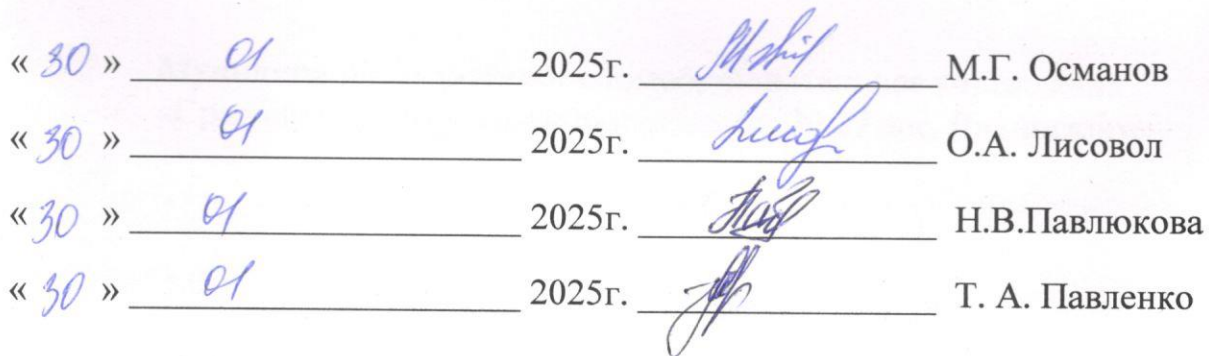 « 30 » 01 2025г. М.Г. Османов
« 30 » 01 2025г. О.А. Лисовол
« 30 » 01 2025г. Н.В.Павлюкова
« 30 » 01 2025г. Т. А. Павленко